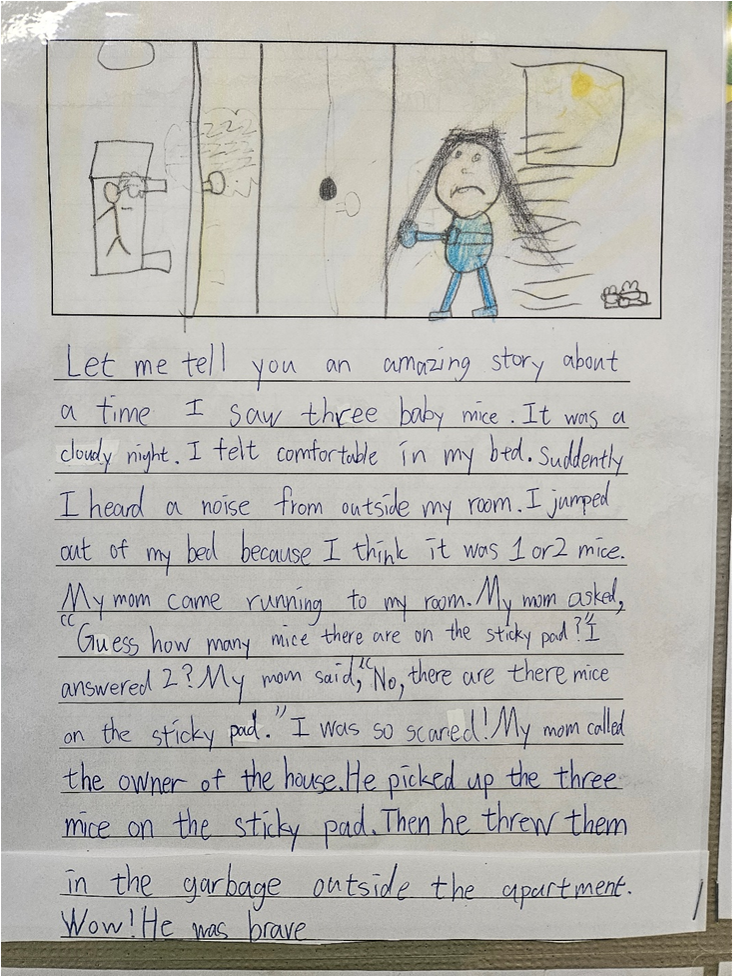 Let me tell you an amazing story about
a time I saw three baby mice. It was a
cloudy night. I felt comfortable in my bed. Suddently
I heard a noise from outside my room. I jumped
out of my bed because I think it was 1 or 2 mice.
My mom came running to my room. My mom asked,
"Guess how many mice there are on the sticky pad?" I
answered 2? My mom said, "No, there are there mice
on the sticky pad." I was so scared! My mom called
the owner of the house. He picked up the three
mice on the sticky pad. Then he threw them
in the garbage outside the apartment.
Wow! He was brave